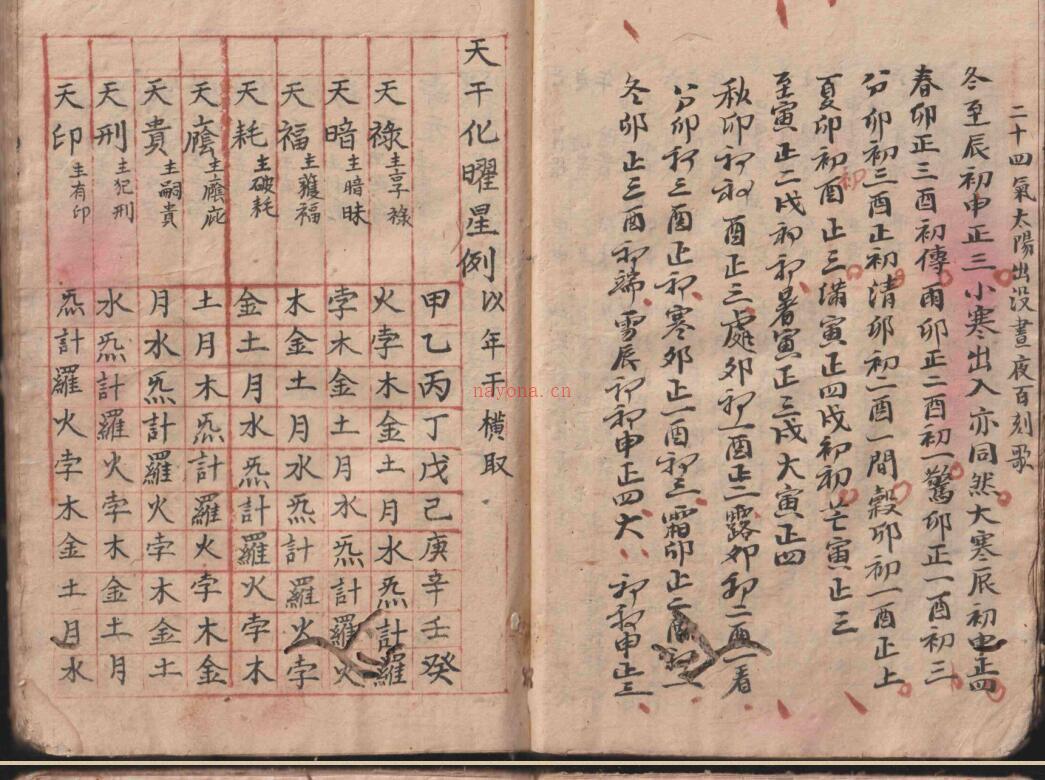 二十四氣太陽出没晝夜百刻歌
冬至辰初申正三小寒出入亦同然大寒辰初申正四
春卯正三酉初傳雨卯正二酉初一驚卯正一酉初三
分卯初三酉正初清卯初二酉一間穀卯初一酉正上
夏卯初酉正三滿寅正四戌初初芒寅正三
至寅正二戌初初暑寅正三戌大寅正四
秋卯初初酉正三處卯初一酉正二露卯初二酉一看
分卯初三酉正初寒卯正一酉初三霜卯正二酉初一
冬卯正三酉初端雪辰初初申正四大初初申正三
天干化曜星例以年干橫取
甲乙丙丁戊己庚辛壬癸
天祿主享祿火孛木金土月水炁計羅
天暗主暗昧孛木金土月水炁計羅火
天福主護福木金土月水炁計羅火孛
天耗主破耗金土月水炁計羅火孛木
天廕主廕庇土月木炁計羅火孛木金
天貴主嗣貴月水炁計羅火孛木金土
天刑主犯刑水炁計羅火孛木金土月
天印主有印炁計羅火孛木金土月水
nayona.cn